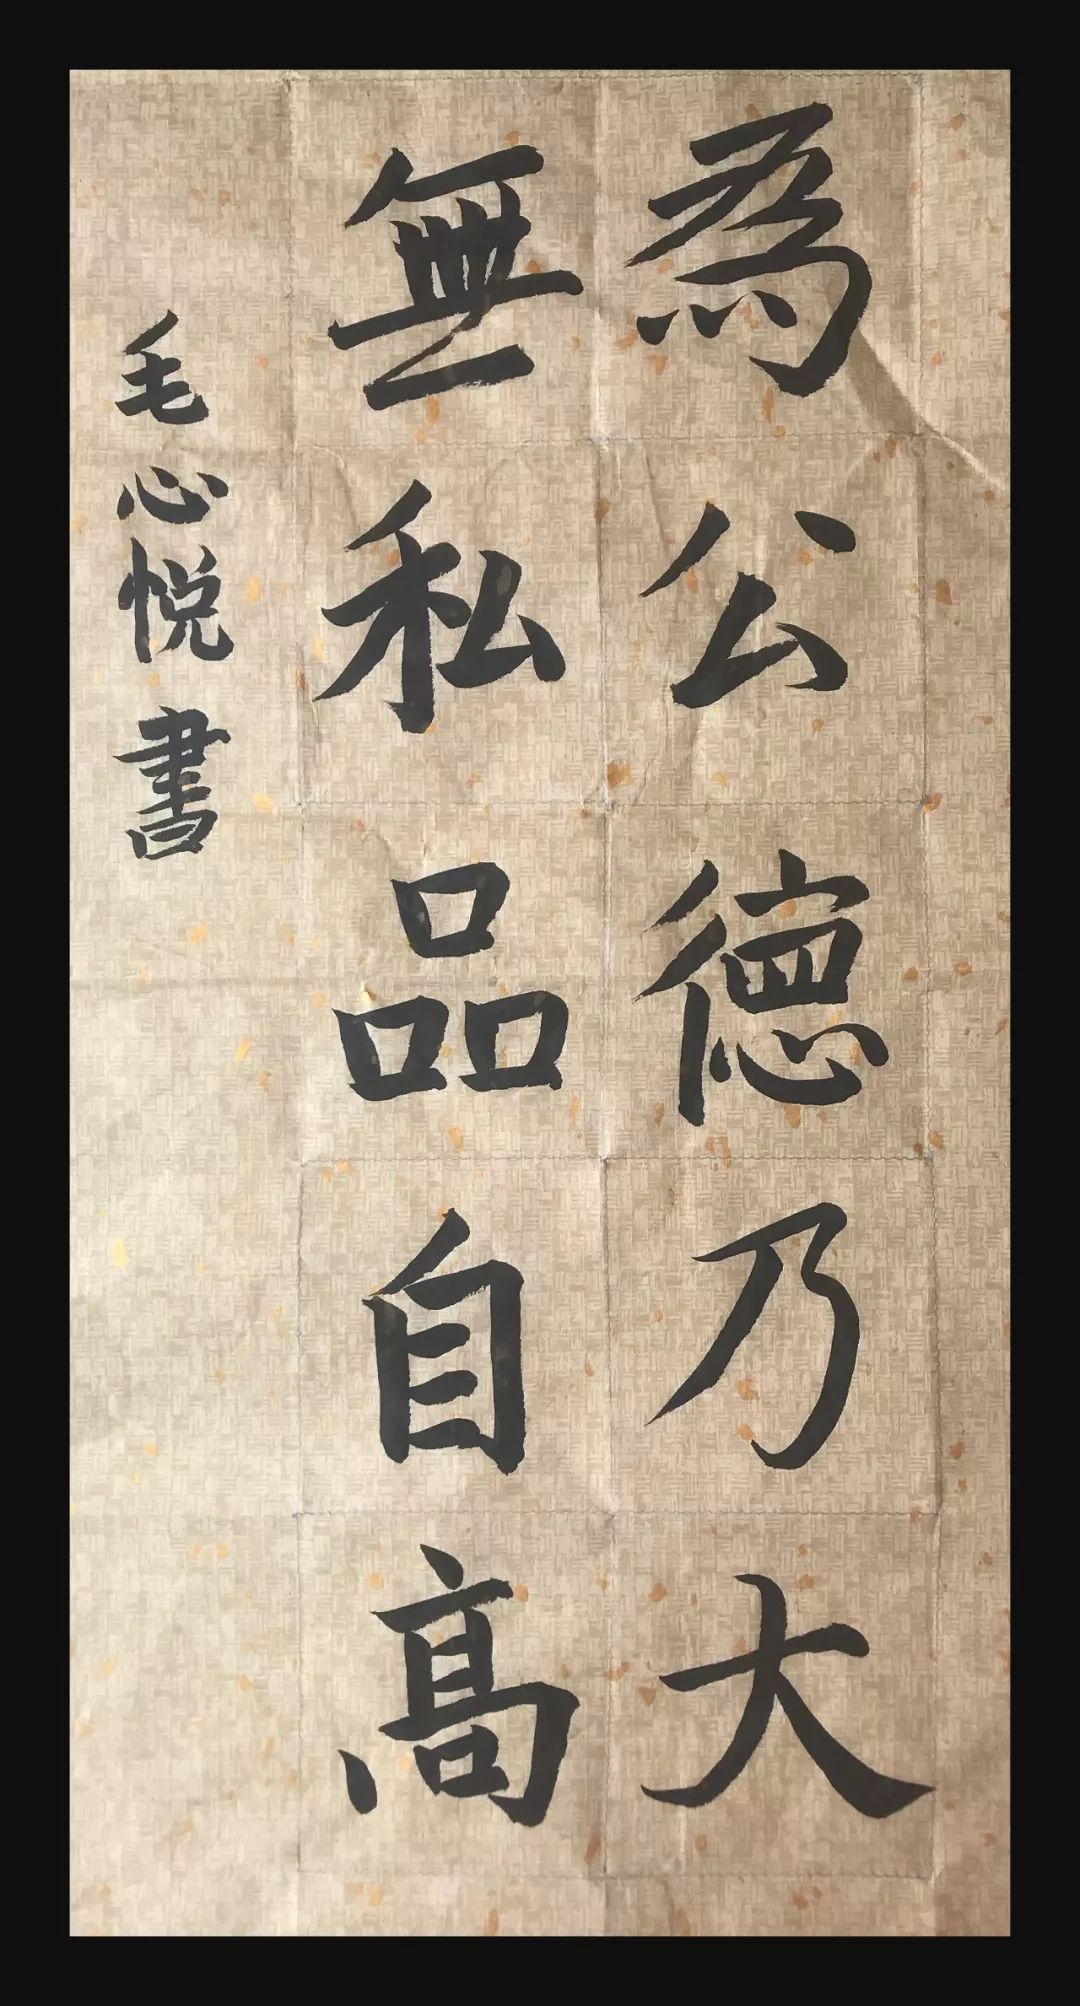 為公德乃大
無私品自高
毛心悦書